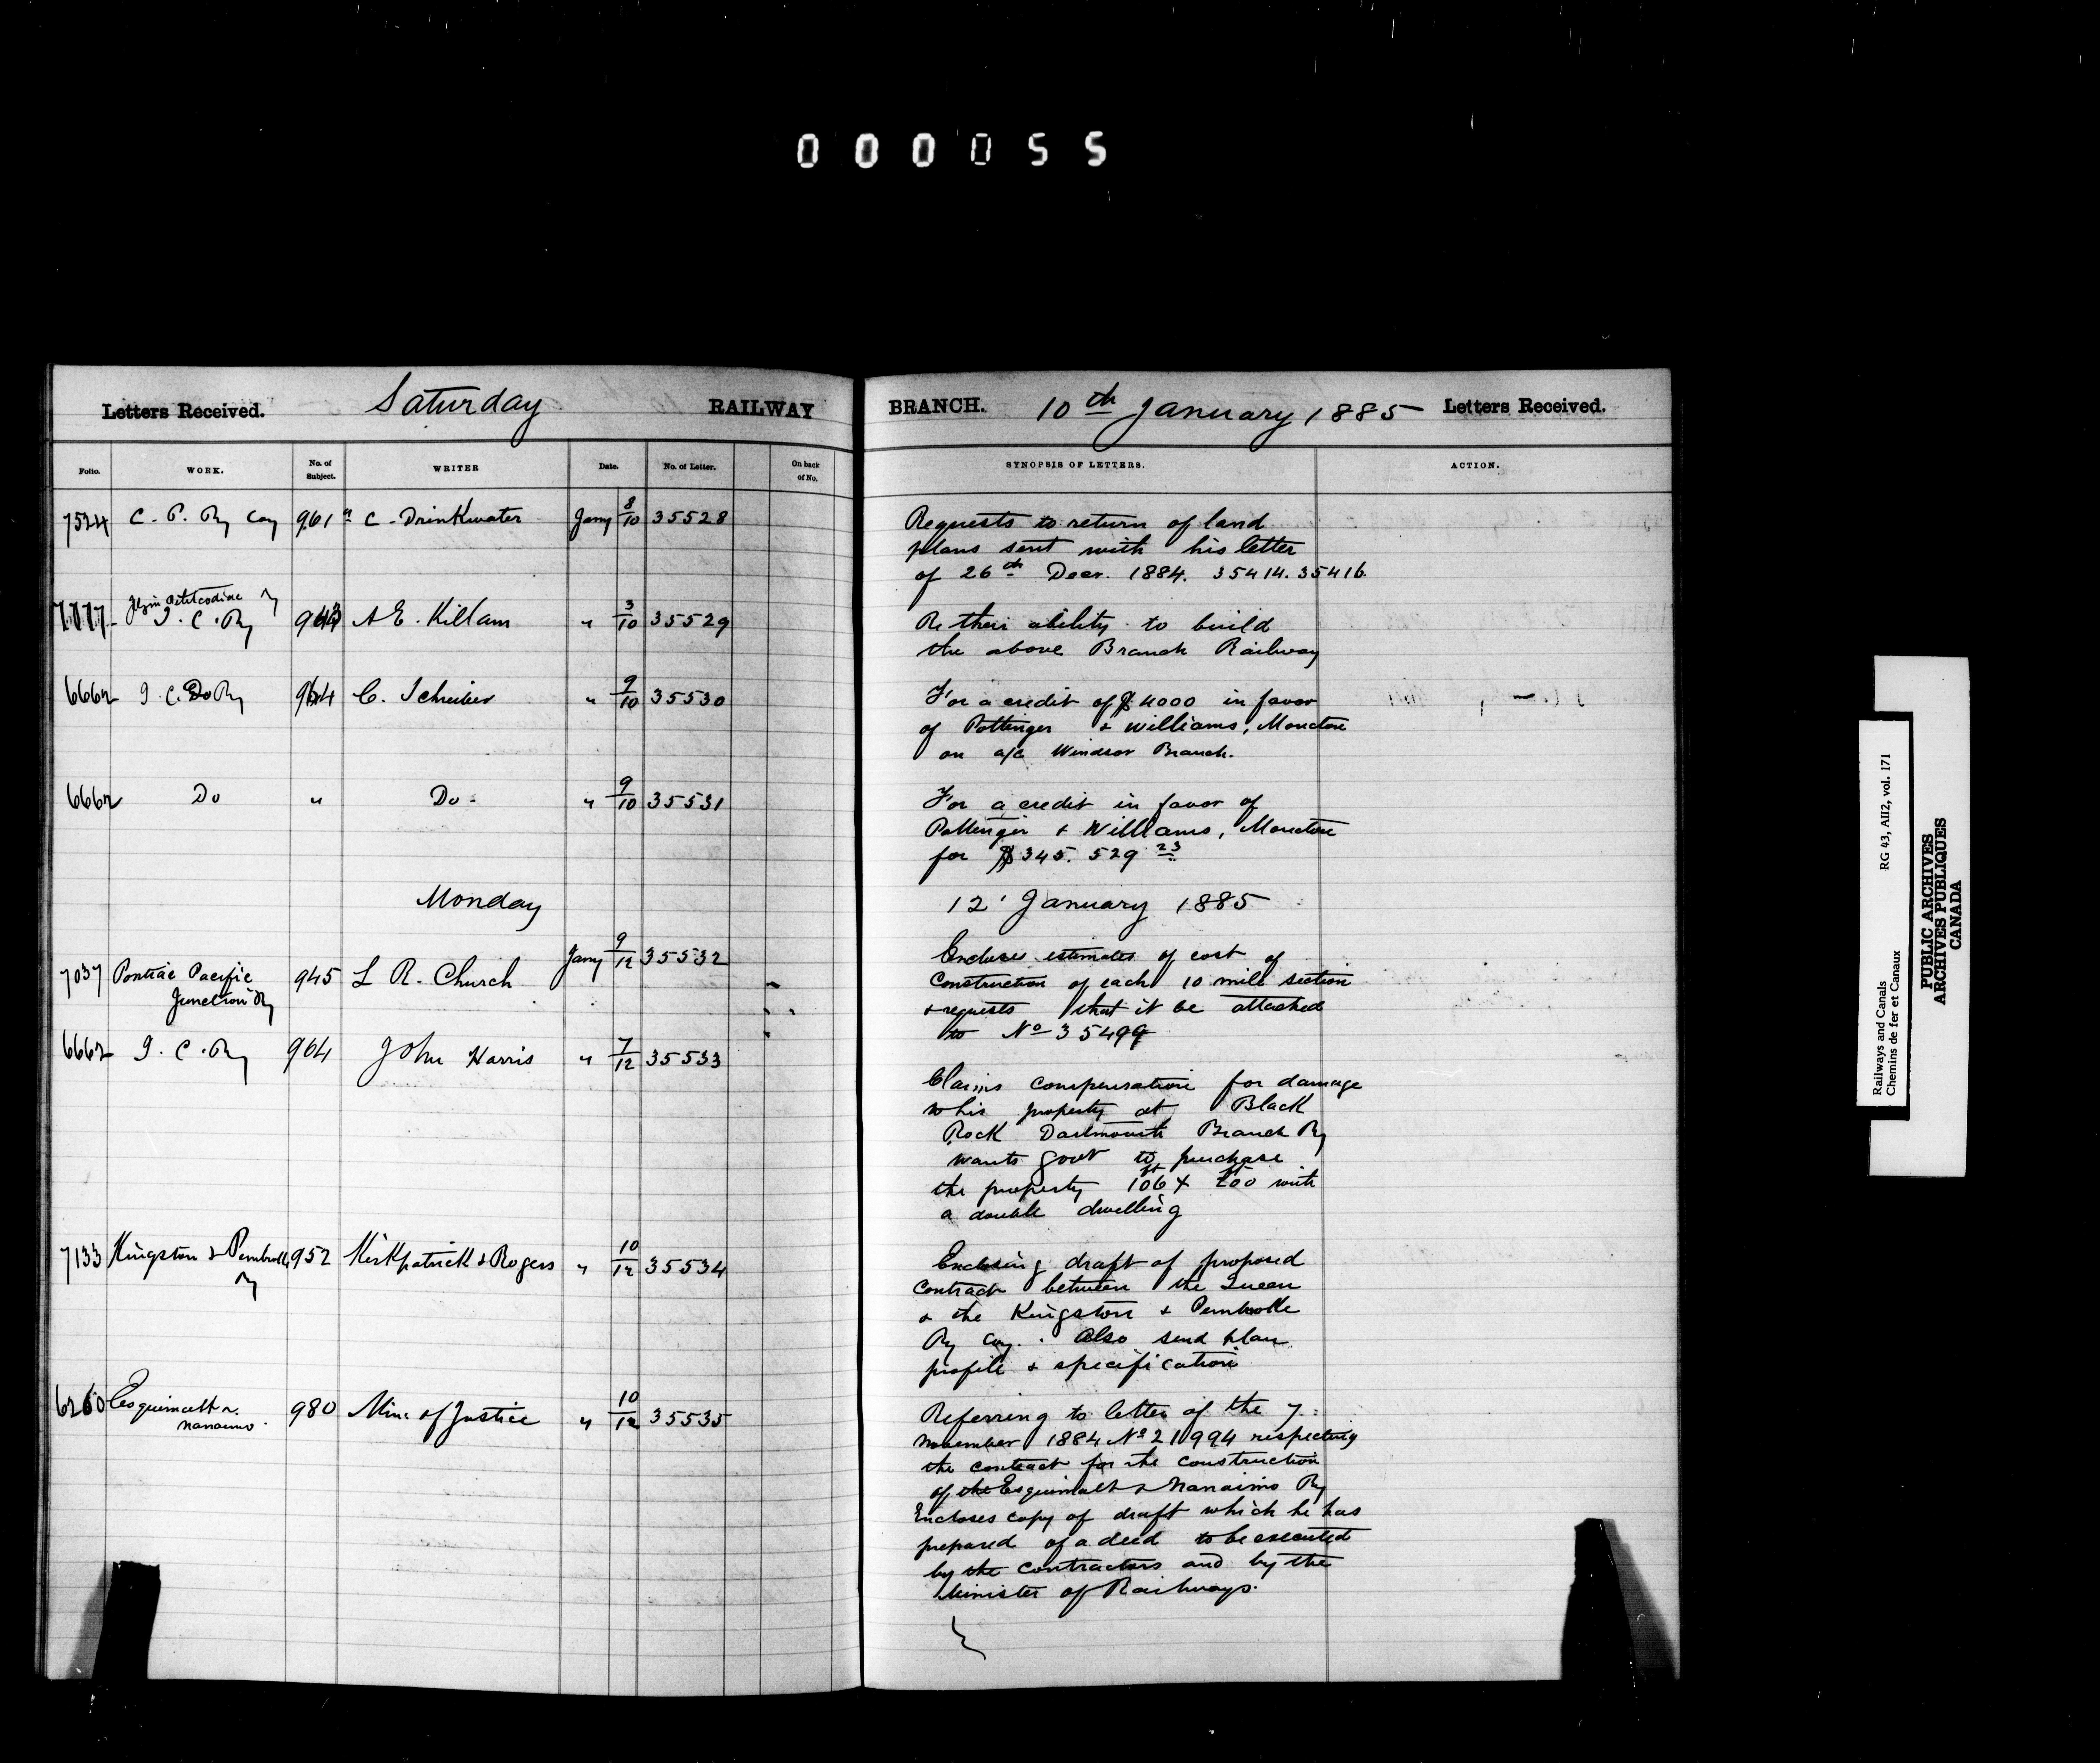 000055
Letters Received. Saturday RAILWAY BRANCH. 10th January 1885 Letters Received.
Folio. WORK. No. of Subject. WRITER Date. No. of Letter. On back of No. SYNOPSIS OF LETTERS. ACTION.
7524 C. P. Ry Coy 961 C. Drinkwater Jany 8/10 35528
Requests to return of land
plans sent with his letter
of 26th Decr. 1884. 35414. 35416.
Elgin Petitcodiac Ry
7777 I. C. Ry A E. Killam " 3/10 35529
Re their ability to build
the above Branch Railway
6662 I. C. Ry 964 C. Schreiber " 9/10 35530
For a credit of $4000 in favor
of Pottinger & Williams, Moncton
on a/c Windsor Branch.
6662 Do " Do. " 9/10 35531
For a credit in favor of
Pottinger & Williams, Moncton
for $345.529 23
Monday 12' January 1885
7037 Pontiac Pacific 945 L R. Church Jany 9/12 35532
Junction Ry
Encloses estimates of cost of
Construction of each 10 mile section
& requests that it be attached
to No 35499
6662 I. C. Ry 964 John Harris " 7/12 35533
Claims compensation for damage
to his property at Black
Rock Dartmouth Branch Ry
wants Govt to purchase
the property 106ft x 200ft with
a double dwelling
7133 Kingston & Pembroke 952 Kirkpatrick & Rogers " 10/12 35534
Ry
Enclosing draft of proposed
contract between the Queen
& the Kingston & Pembroke
Ry Coy. Also send plan
profile & specification
6260 Esquimalt &
Nanaimo 980 Min. of Justice " 10/12 35535
Referring to letter of the 7
November 1884 No 21994 respecting
the contract for the construction
of the Esquimalt & Nanaimo Ry
Encloses copy of draft which he has
prepared of a deed to be executed
by the contractors and by the
Minister of Railways.
Railways and Canals RG 43, AII2, vol. 171
Chemins de fer et Canaux
PUBLIC ARCHIVES
ARCHIVES PUBLIQUES
CANADA